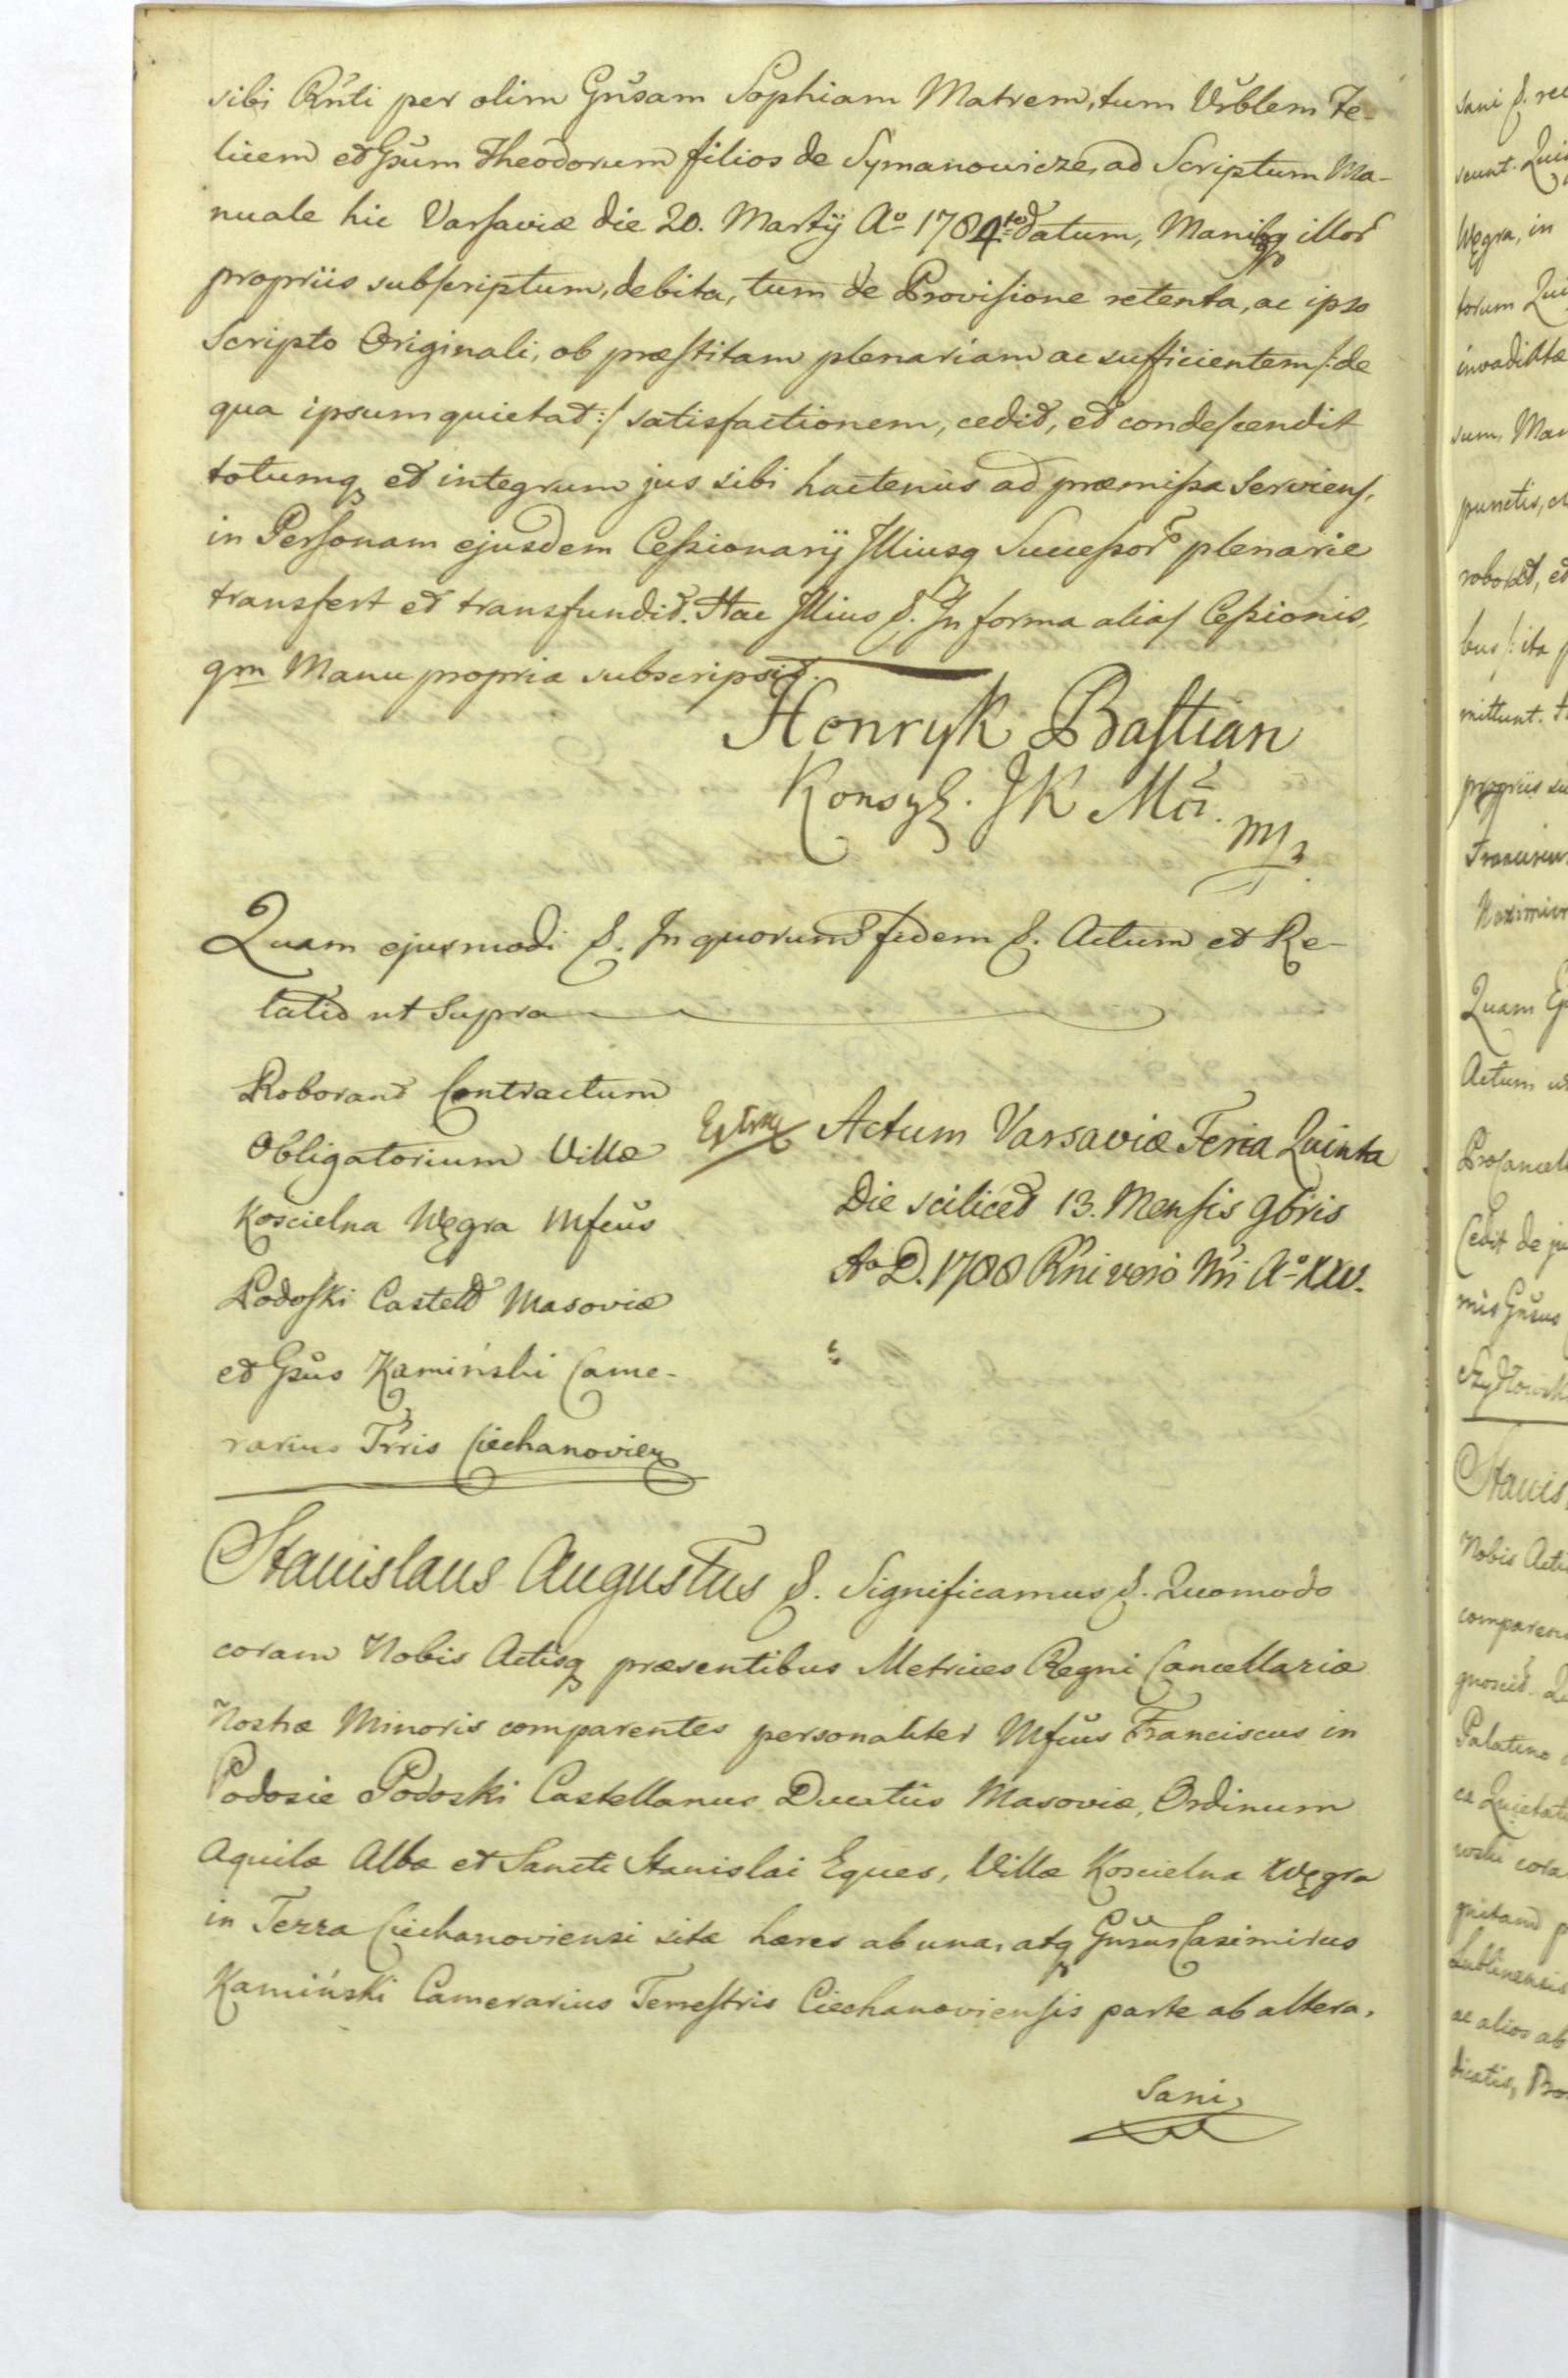 sibi Rnti per olim Gnsam Sophiam Matrem, tum Urblem Fe-
licem et Gsum Theodorum filios de Symanowicze, ad Scriptum Ma-
nuale hic Varsaviæ die 20. Martij Ao 1784to datum, Manibq illor
propriis subscriptum, debita, tum de Provisione retenta, ac ipso
Scripto Originali, ob præstitam plenariam ac sufficientem /: de
qua ipsum quietat :/ satisfactionem, cedit, et condescendit
totumq et integrum jus sibi hactenus ad præmissa Serviens,
in Personam ejusdem Cessionarij Illiusq Successor plenarie
transfert et transfundit. Hac Illius &. In forma alias Cessionis,
qm Manu propria subscripsit.
Henryk Bastian
Konsyl. JK Mci.
mp
Quam ejusmodi &. In quorum fidem &. Actum et Re-
latio ut Supra
Roborand Contractum
Obligatorium Villæ
Koscielna Węgra Mfcus
Podoski Castell Masoviæ
et Gsus Kamiński Came-
rarius Trris Ciechanovien
Actum Varsaviæ Feria Quinta
Die scilicet 13. Mensis 9bris
Ao D. 1788 Rni vero Nri Ao XXV.
Stanislaus Augustus &. Significamus &. Quomodo
coram Nobis Actisq præsentibus Metrices Regni Cancellariæ
Nostræ Minoris comparentes personaliter Mfcus Franciscus in
Podosie Podoski Castellanus Ducatus Masoviæ, Ordinum
Aquilæ Albæ et Sancti Stanislai Eques, Villæ Koscielna Węgra
in Terra Ciechanoviensi sitæ hæres ab una, atq Gnsus Casimirus
Kamiński Camerarius Terrestris Ciechanoviensis parte ab altera,
Sani